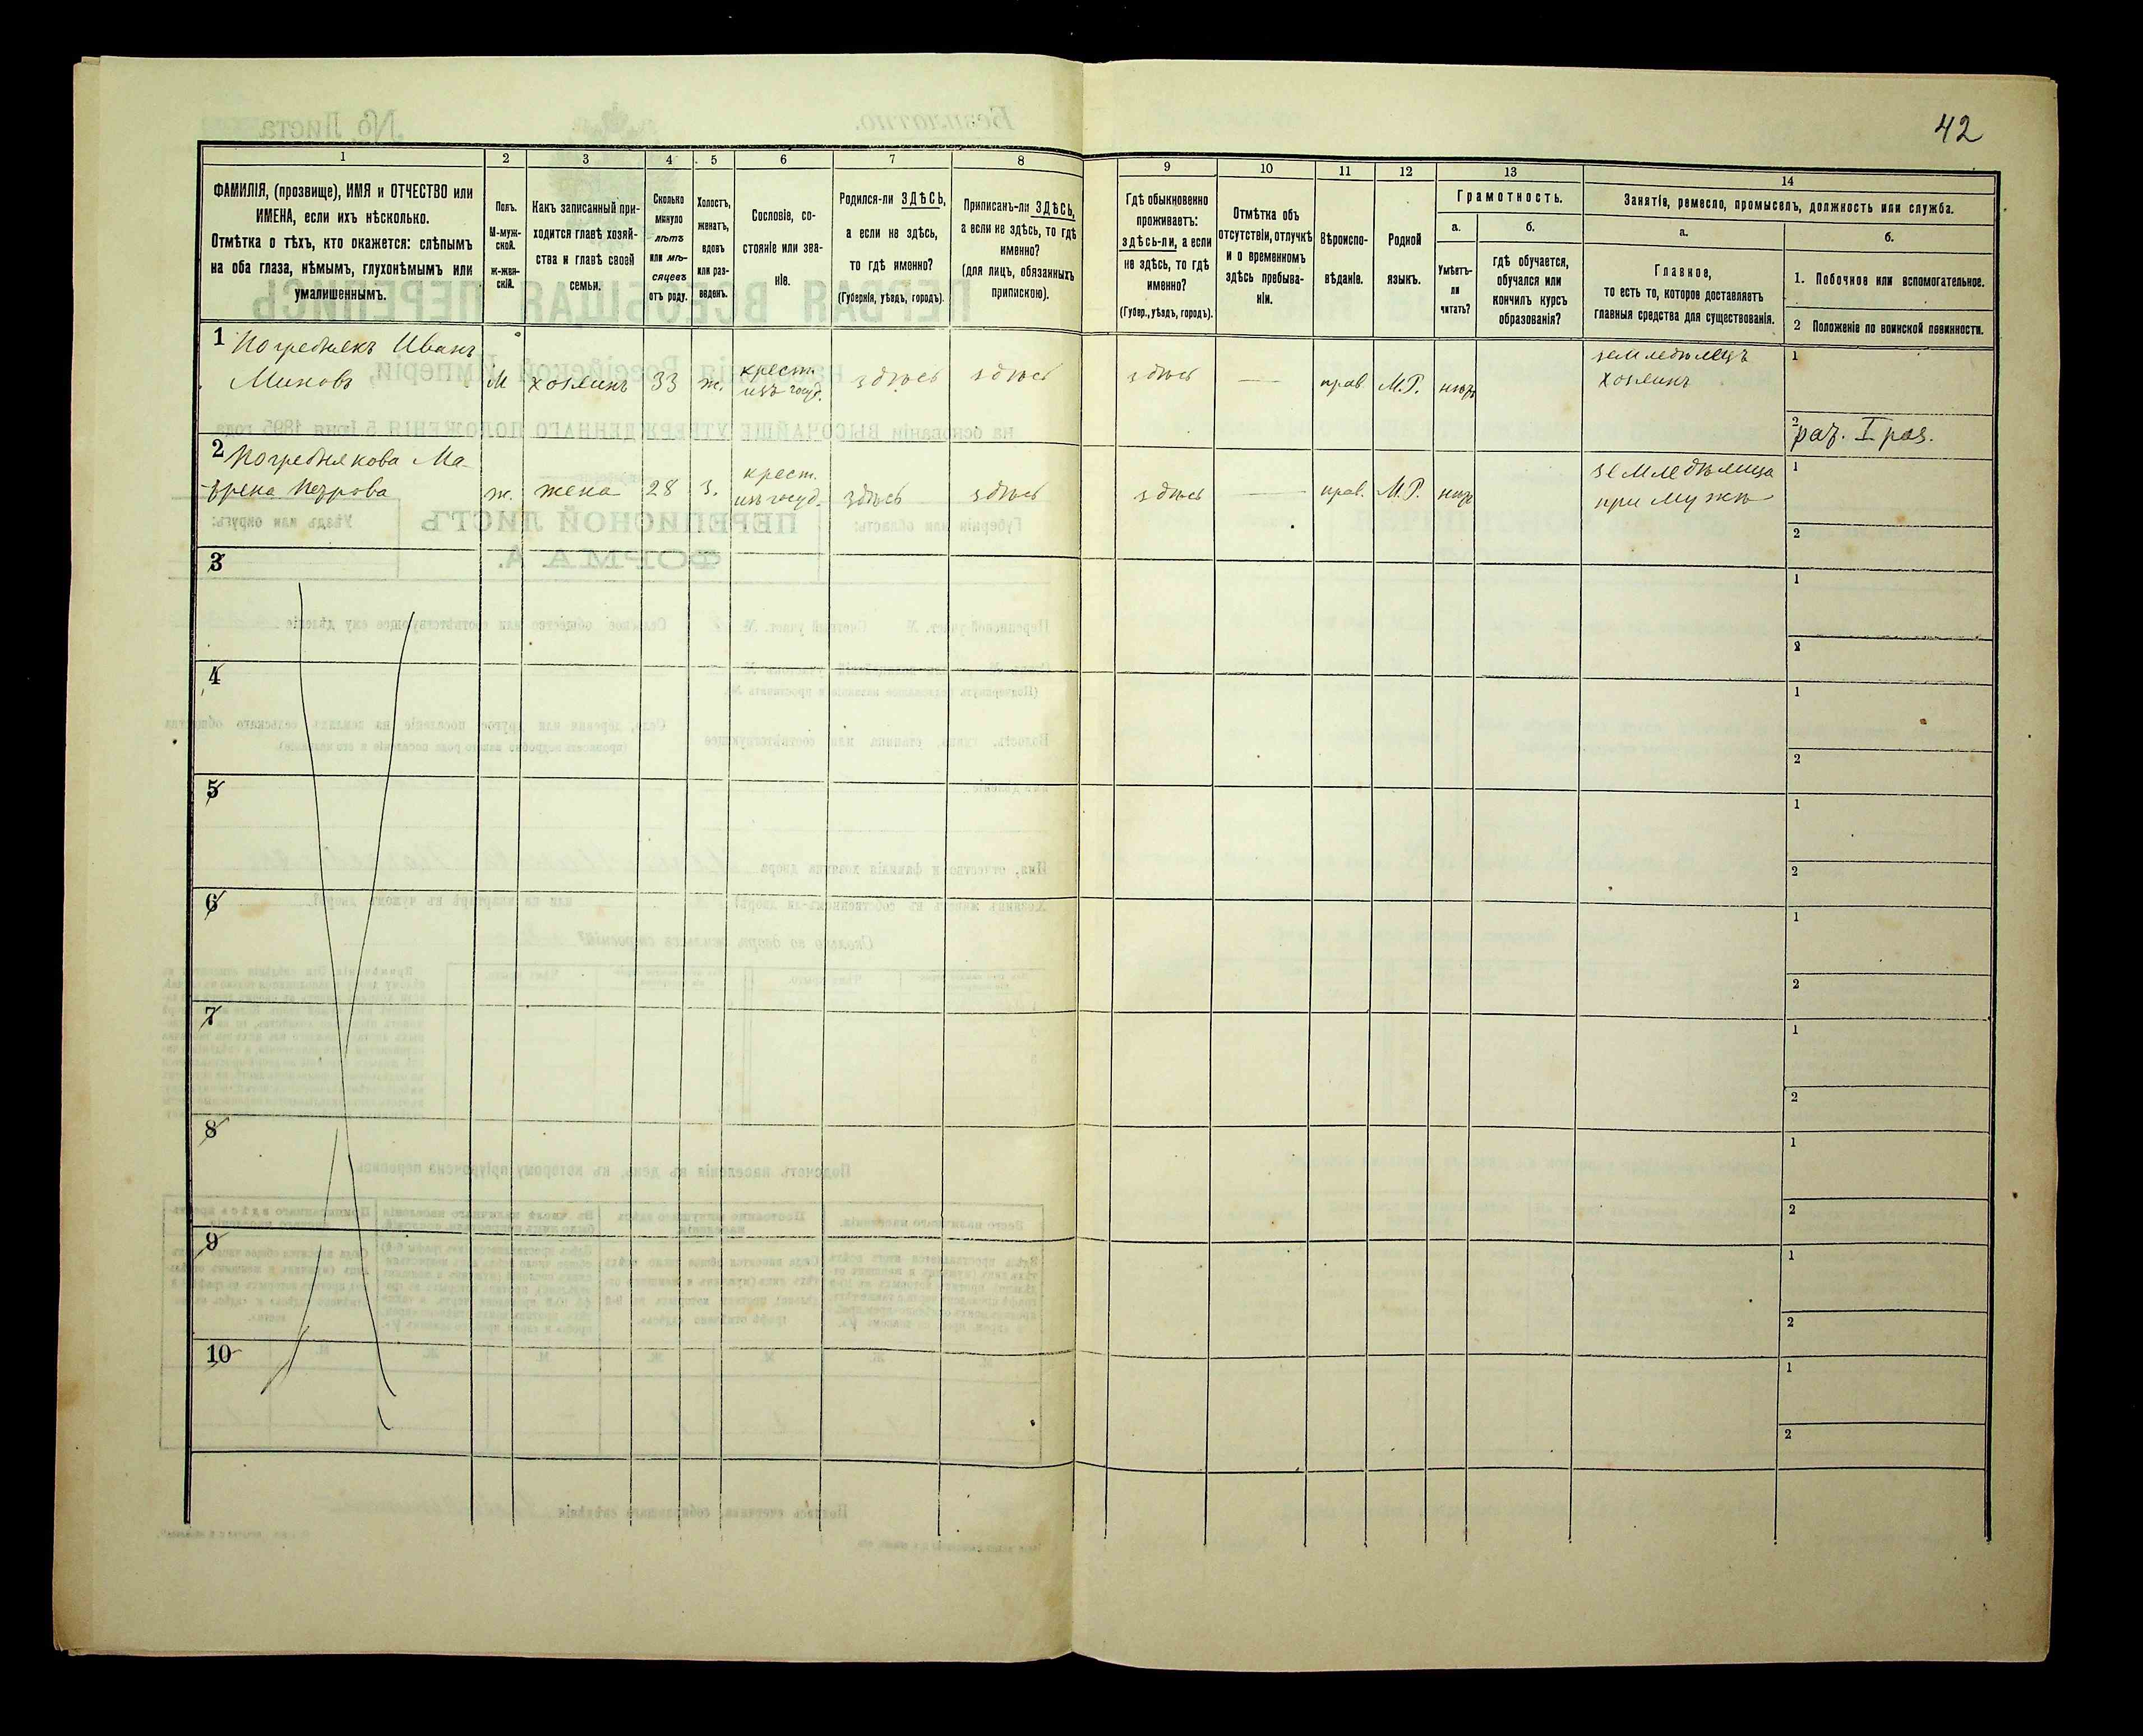 42
1 2 3 4 5 6 7 8 9 10 11 12 13 14
ФАМИЛІЯ, (прозвище), ИМЯ и ОТЧЕСТВО или
ИМЕНА, если ихъ нѣсколько.
Отмѣтка о тѣхъ, кто окажется: слѣпымъ
на оба глаза, нѣмымъ, глухонѣмымъ или
умалишеннымъ.
Полъ.
М-муж-
ской.
ж-жен-
скій.
Какъ записанный при-
ходится главѣ хозяй-
ства и главѣ своей
семьи.
Сколько
минуло
лѣтъ
или мѣ-
сяцевъ
отъ роду.
Холостъ,
женатъ,
вдовъ
или раз-
веденъ.
Сословіе, со-
стояніе или зва-
ніе.
Родился-ли ЗДѢСЬ,
а если не здѣсь,
то гдѣ именно?
(Губернія, уѣздъ, городъ).
Приписанъ-ли ЗДѢСЬ,
а если не здѣсь, то гдѣ
именно?
(для лицъ, обязанныхъ
припискою).
Гдѣ обыкновенно
проживаетъ:
здѣсь-ли, а если
не здѣсь, то гдѣ
именно?
(Губер., уѣздъ, городъ).
Отмѣтка объ
отсутствіи, отлучкѣ
и о временномъ
здѣсь пребыва-
ніи.
Вѣроиспо-
вѣданіе.
Родной
языкъ.
Грамотность.
а.
Умѣетъ-
ли
читать?
б.
гдѣ обучается,
обучался или
кончилъ курсъ
образованія?
Занятіе, ремесло, промыселъ, должность или служба.
а.
Главное,
то есть то, которое доставляетъ
главныя средства для существованія.
б.
1. Побочное или вспомогательное.
2 Положеніе по воинской повинности.
1 Погреднякъ Иванъ
Миновъ М хозяинъ 33 ж. крест.
изъ госуд. здѣсь здѣсь здѣсь — прав М.Р. нѣтъ земледѣлецъ
хозяинъ
1
2 рат. I раз.
2 Погреднякова Ма-
трена Петрова ж. жена 28 з. крест.
изъ госуд. здѣсь здѣсь здѣсь — прав. М.Р. нѣтъ земледѣлица
при мужѣ
1
2
3
1
2
4
1
2
5
1
2
6
1
2
7
1
2
8
1
2
9
1
2
10
1
2